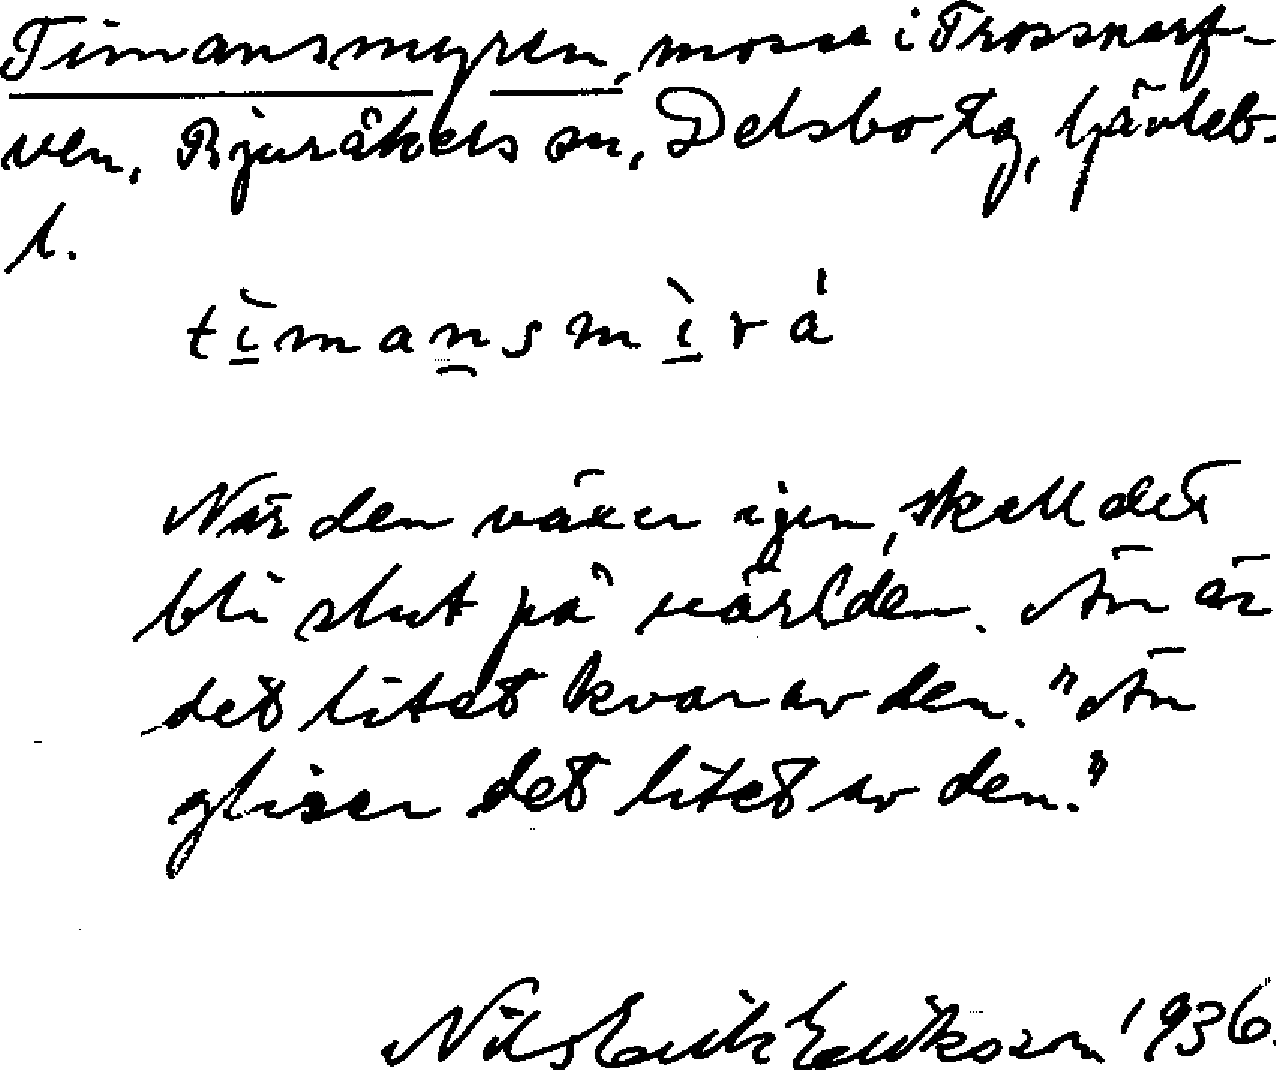 Timansmyren, mosse i Trossnarf-
ven, Bjuråkers sn, Delsbo tg, Gävleb.
l.
tìmansmìrá
När den växer igen, skall det
bli slut på världen. Än är
det litet kvar av den. "Än
gliser det litet av den."
Nils Erik Eriksson 1936.